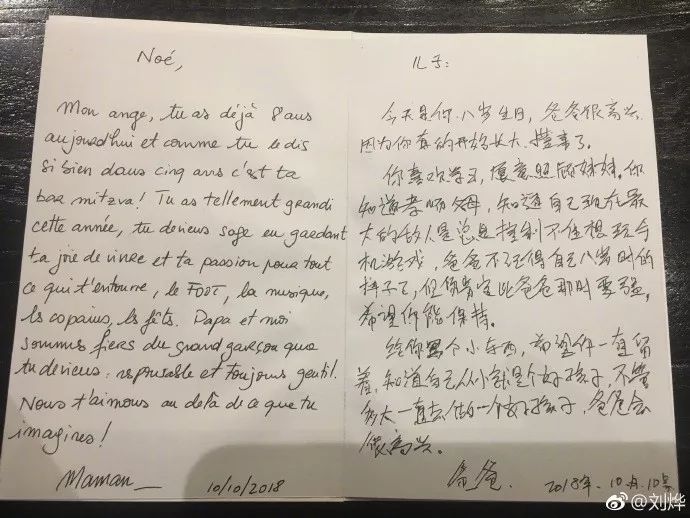 Noé,
Mon ange, tu as déjà 8 ans
aujourd'hui et comme tu le dis
si bien dans cinq ans c'est ta
bar mitzva! Tu as tellement grandi
cette année, tu deviens sage en gardant
ta joie de vivre et ta passion pour tout
ce qui t'entoure, le FOOT, la musique,
les copains, les fêts. Papa et moi
sommes fiers du grand garçon que
tu deviens: responsable et toujours gentil.
Nous t'aimons au delà de ce que tu
imagines!
Maman
10/10/2018
儿子:
今天是你八岁生日,爸爸很高兴,
因为你真的开始长大,懂事了。
你喜欢学习,愿意照顾妹妹。你
知道孝顺父母,知道自己现在最
大的敌人是总是控制不住想玩手
机游戏,爸爸不记得自己八岁时的
样子了,但你肯定比爸爸那时要强。
希望你能保持。
给你写个小东西,希望你一直留
着,知道自己从小就是个好孩子,不管
多大一直去做一个好孩子,爸爸会
很高兴。
爸爸
2018年.10月.10号
@刘烨